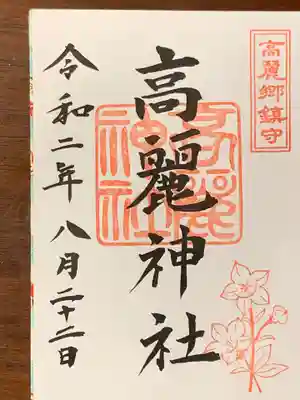 高麗郷鎮守
高麗神社
令和二年八月二十二日
高麗神社